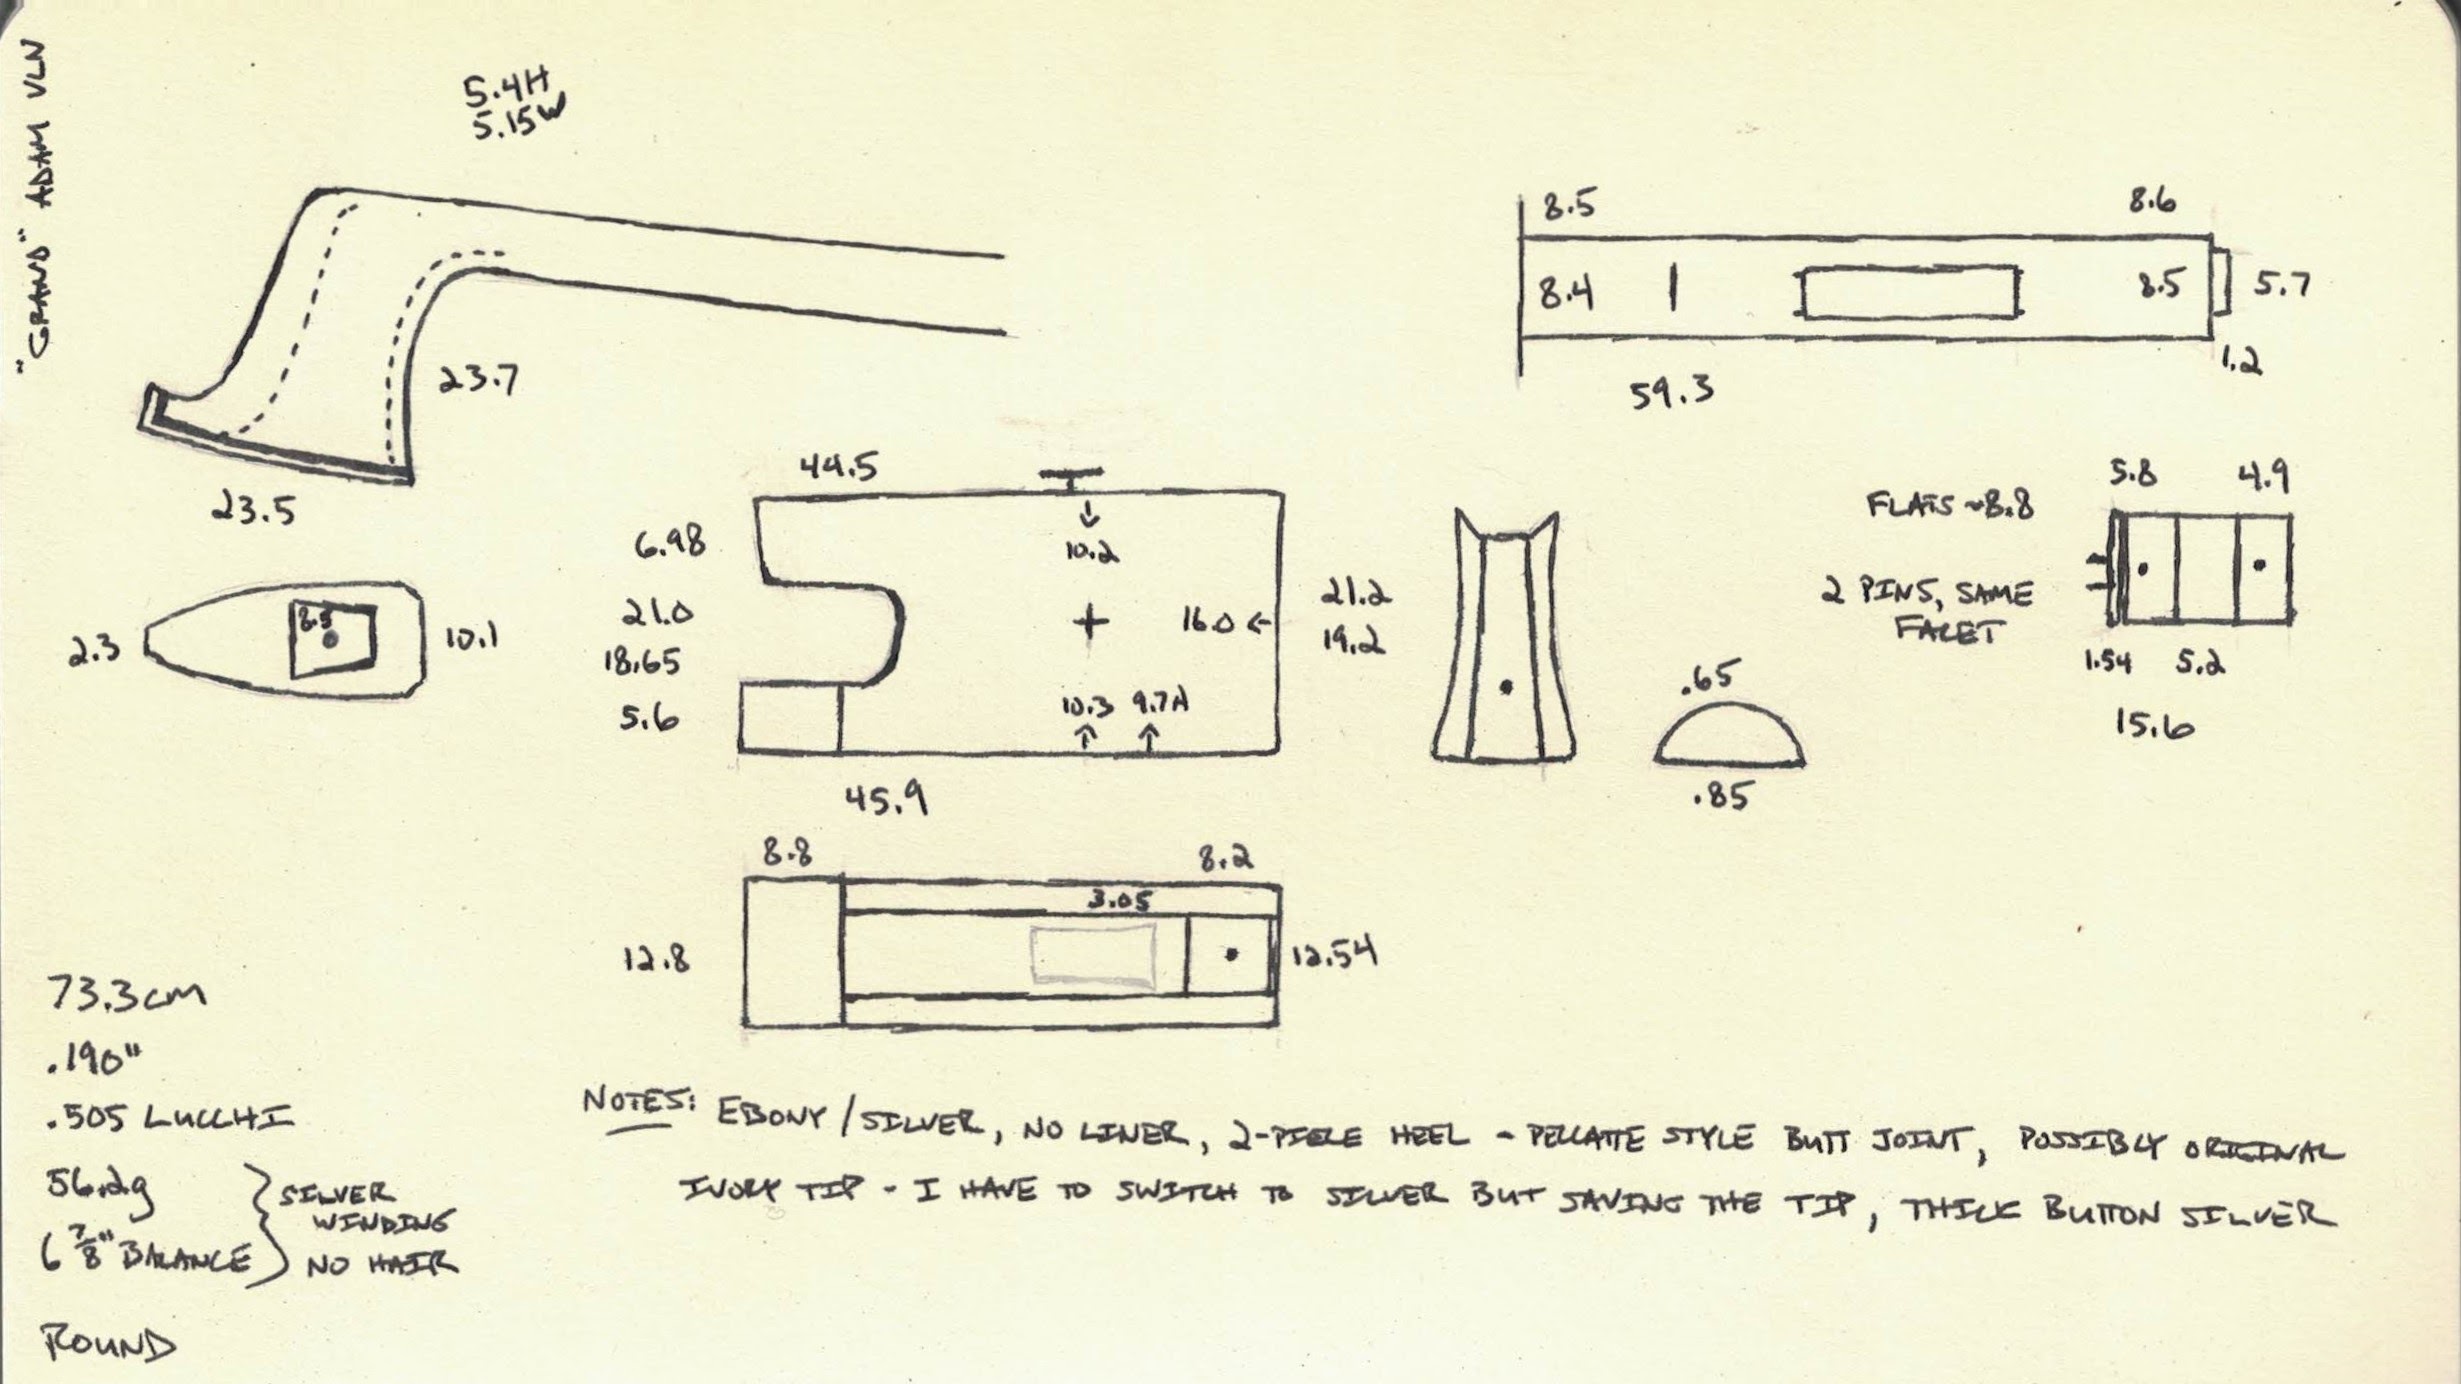 "GRAND" ADAM VLN
5.4H
5.15W
23.7
23.5
8.5
8.6
8.4
8.5
5.7
1.2
59.3
44.5
6.98
10.2
21.0
18.65
5.6
16.0
10.3
9.7
45.9
21.2
19.2
.65
.85
FLATS ~8.8
2 PINS, SAME
FACET
5.8
4.9
1.54
5.2
15.6
2.3
8.5
10.1
8.8
8.2
3.05
12.8
12.54
73.3cm
.190"
.505 LUCCHI
56.2g
6 7/8" BALANCE
SILVER
WINDING
NO HAIR
ROUND
NOTES: EBONY/SILVER, NO LINER, 2-PIECE HEEL - PECCATTE STYLE BUTT JOINT, POSSIBLY ORIGINAL
IVORY TIP - I HAVE TO SWITCH TO SILVER BUT SAVING THE TIP, THICK BUTTON SILVER